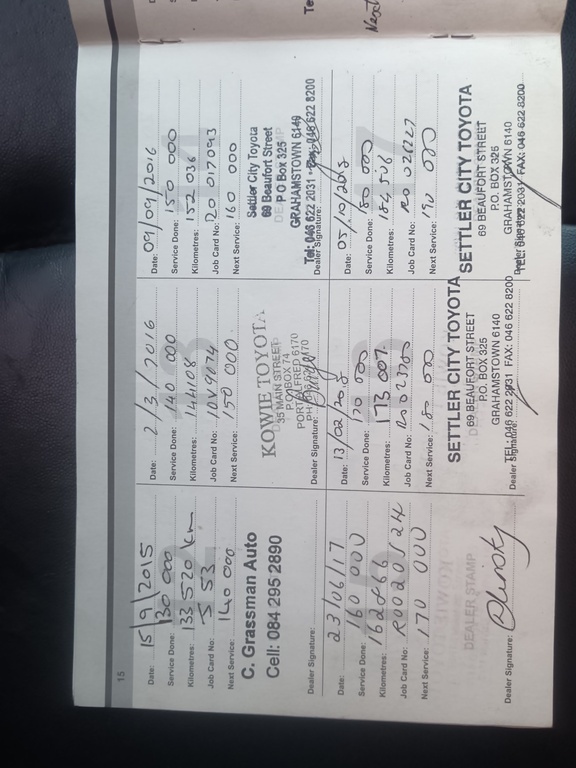 15
Date: 15/9/2015
Service Done: 130 000
Kilometres: 133 520 km
Job Card No: 553
Next Service: 140 000
C. Grassman Auto
Cell: 084 295 2890
Dealer Signature:
Date: 2/3/2016
Service Done: 140 000
Kilometres: 144108
Job Card No:
Next Service: 150 000.
KOWIE TOYOTA
35 MAIN STREET
P.O. BOX 74
PORT ALFRED 6170
Dealer Signature:
Date: 09/09/2016
Service Done: 150 000
Kilometres: 152 036
Job Card No: RO 017093
Next Service: 160 000
Settler City Toyota
69 Beaufort Street
P O Box 325
GRAHAMSTOWN 6140
Tel: 046 622 2031 Fax: 046 622 8200
Dealer Signature:
Date: 23/06/17
Service Done: 160 000
Kilometres: 162866
Job Card No: R0020124
Next Service: 170 000
DEALER STAMP
Dealer Signature:
Date: 13/02/2018
Service Done: 170 000
Kilometres: 173 007.
Job Card No:
Next Service: 180 000
SETTLER CITY TOYOTA
69 BEAUFORT STREET
P.O. BOX 325
GRAHAMSTOWN 6140
TEL: 046 622 2031 FAX: 046 622 8200
Dealer Signature:
Date: 05/10/2018
Service Done: 180 000
Kilometres: 184 506
Job Card No: RO 026227
Next Service: 190 000
SETTLER CITY TOYOTA
69 BEAUFORT STREET
P.O. BOX 325
GRAHAMSTOWN 6140
TEL: 046 622 2031 FAX: 046 622 8200
Dealer Signature:
Next